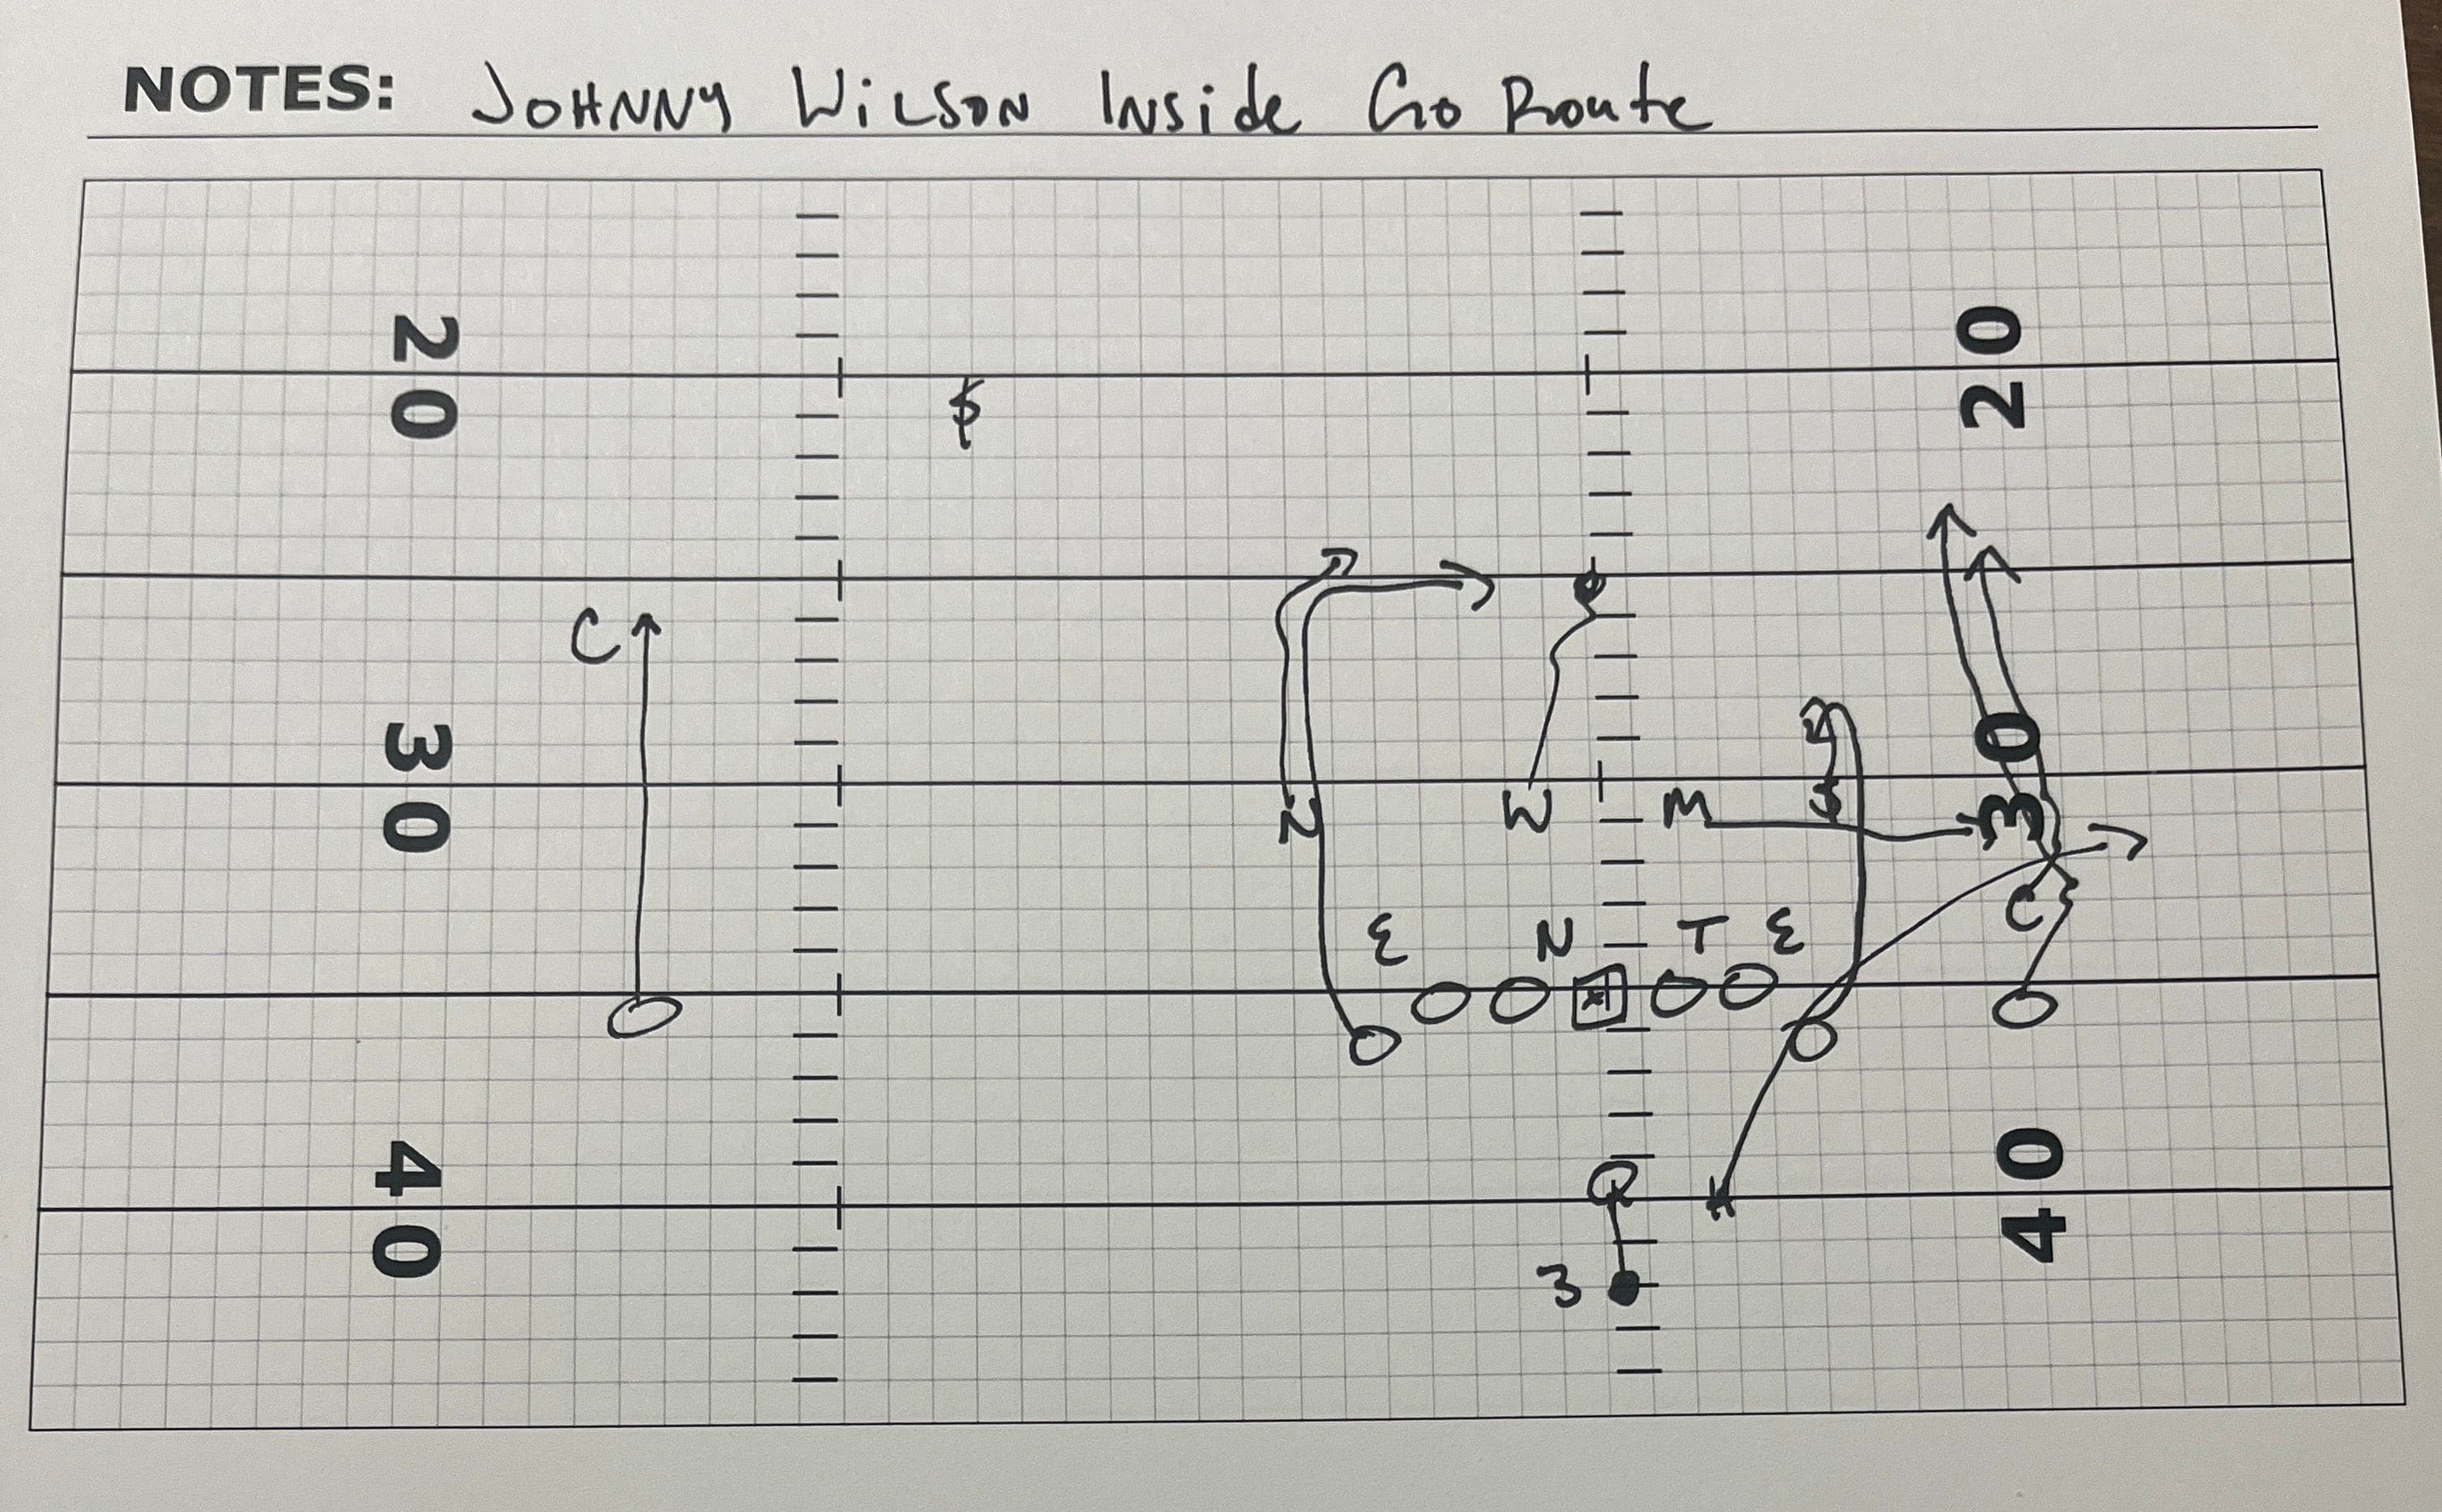 NOTES: JOHNNY WILSON INSIDE GO ROUTE
20 20
$
C
30 N W M $ 30
E N T E C
40 Q 40
3